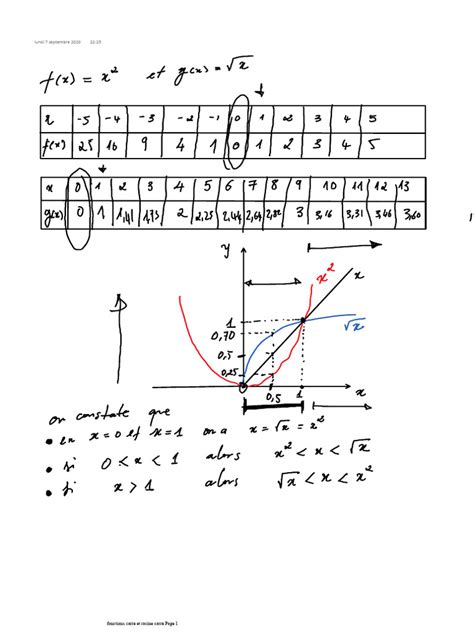 lundi 7 septembre 2020 22:25
f(x) = x² et g(x) = √x
x -5 -4 -3 -2 -1 0 1 2 3 4 5
f(x) 25 16 9 4 1 0 1 2 3 4 5
x 0 1 2 3 4 5 6 7 8 9 10 11 12 13
g(x) 0 1 1,41 1,73 2 2,25 2,44 2,64 2,82 3 3,16 3,31 3,46 3,60
y
x²
x
1
0,70
√x
0,5
0,25
0,5 1 x
on constate que
• en x=0 et x=1 on a x = √x = x²
• si 0 < x < 1 alors x² < x < √x
• si x > 1 alors √x < x < x²
fonctions carre et racine carre Page 1